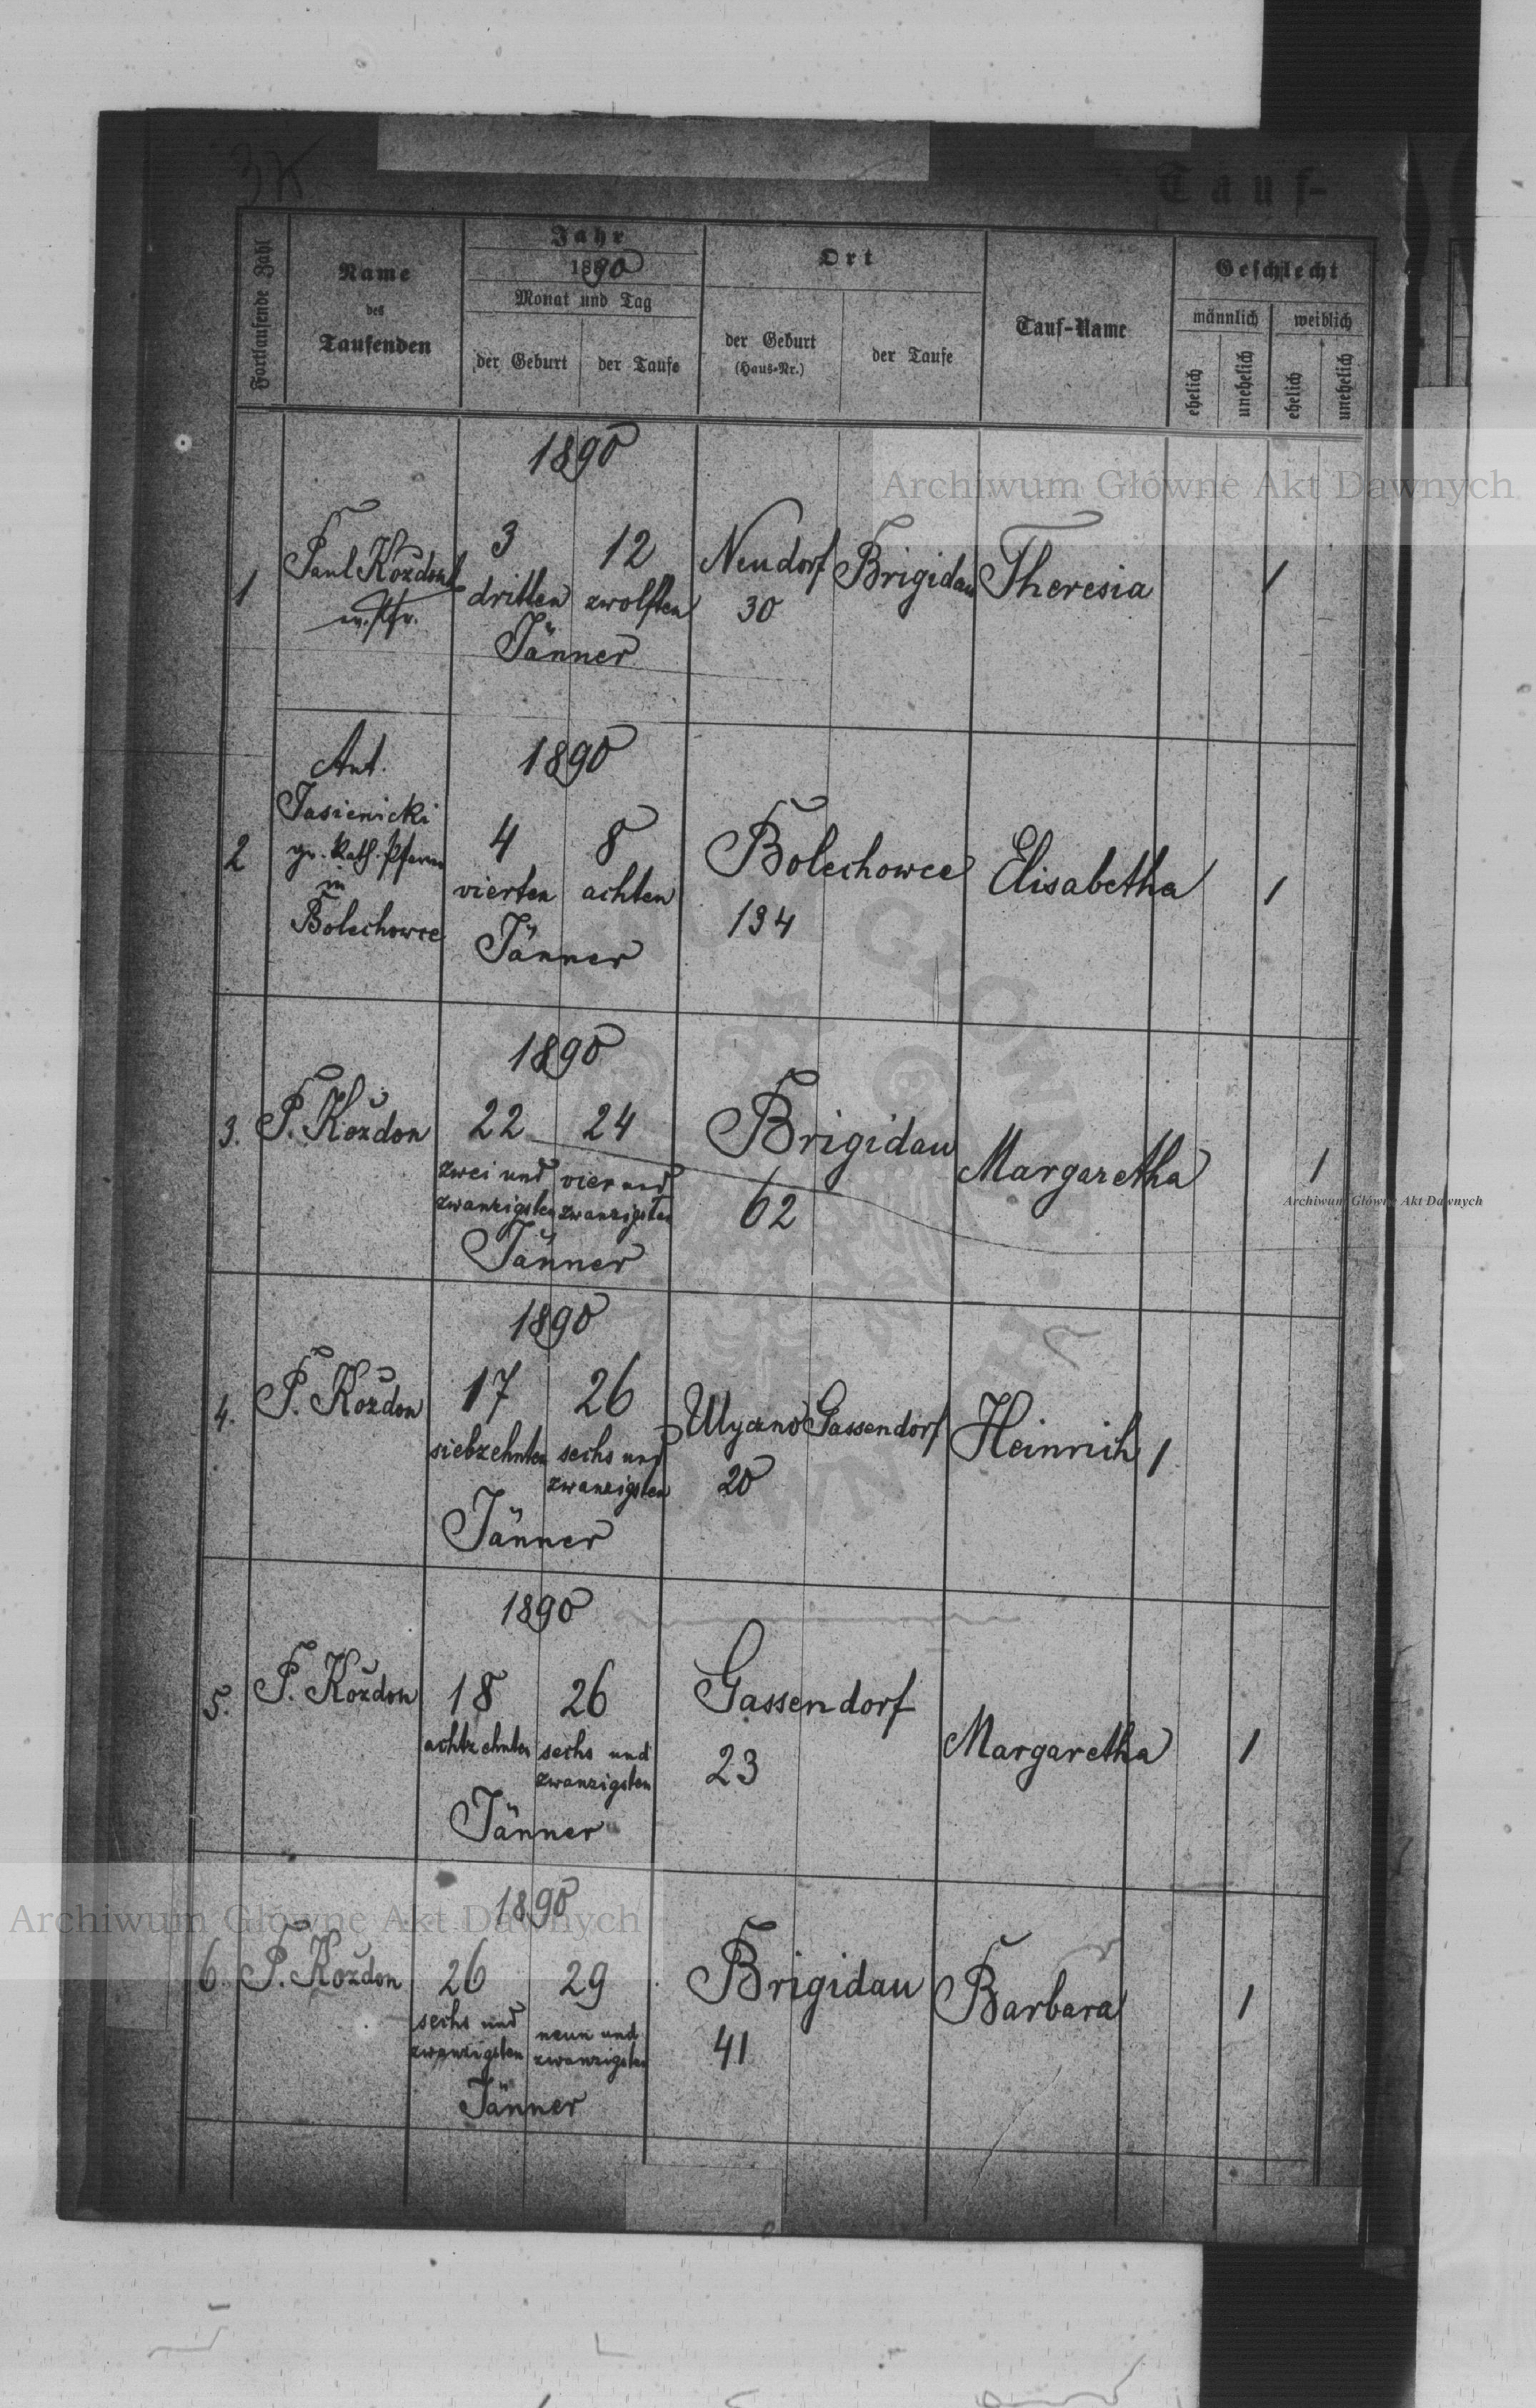 Tauf-
Fortlaufende Zahl
Name
des
Taufenden
Jahr
1890
Monat und Tag
der Geburt
der Taufe
Ort
der Geburt
(Haus-Nr.)
der Taufe
Tauf-Name
Geschlecht
männlich
weiblich
ehelich
unehelich
ehelich
unehelich
Archiwum Główne Akt Dawnych
1890
1
Paul Kozdon
ev. Pfr.
3
dritten
12
zwölften
Jänner
Neudorf
30
Brigidau
Theresia
1
1890
2
Ant.
Jasienicki
gr. kath. Pfarrer
in
Bolechowce
4
vierten
8
achten
Jänner
Bolechowce
134
Elisabetha
1
1890
3.
P. Kozdon
22
zwei und
zwanzigsten
24
vier und
zwanzigsten
Jänner
Brigidau
62
Margaretha
1
Archiwum Główne Akt Dawnych
1890
4.
P. Kozdon
17
siebzehnten
26
sechs und
zwanzigsten
Jänner
Ulyczno
20
Gassendorf
Heinrich
1
1890
5.
P. Kozdon
18
achtzehnten
26
sechs und
zwanzigsten
Jänner
Gassendorf
23
Margaretha
1
Archiwum Główne Akt Dawnych
1890
6.
P. Kozdon
26
sechs und
zwanzigsten
29
neun und
zwanzigsten
Jänner
Brigidau
41
Barbara
1